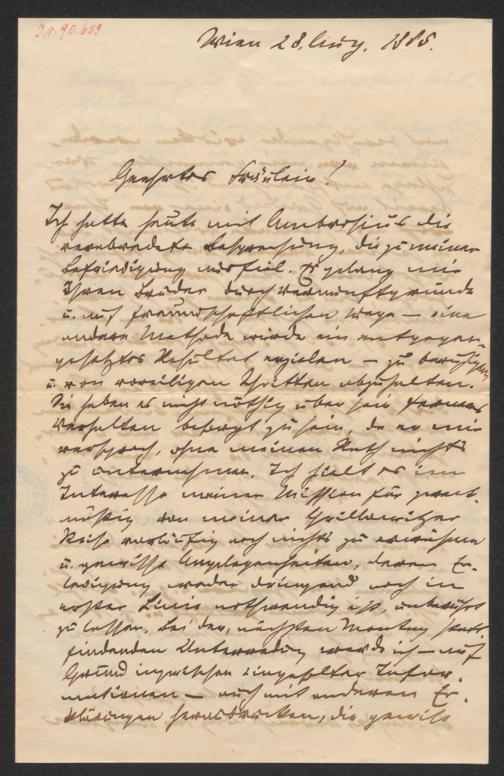 J.N. 90.609
Wien 28. Aug. 1885.
Geehrtes Fräulein!
Ich hatte heute mit Ambrosius die
verabredete Besprechung, die zu meiner
Befriedigung ausfiel. Es gelang mir
Ihren Bruder durch Vernunftgründe
u. auf freundschaftlichem Wege – eine
andere Methode würde ein entgegen-
gesetztes Resultat erzielen – zu beruhigen
u. von voreiligen Schritten abzuhalten.
Sie haben es nicht nöthig über sein ferneres
Verhalten besorgt zu sein, da er mir
versprach, ohne meinen Rath nichts
zu unternehmen. Ich hielt es im
Interesse meiner Mission für zweck-
mäßig von meiner
Reise vorläufig noch nichts zu erwähnen
u. gewisse Angelegenheiten, deren Er-
ledigung weder dringend noch in
erster Linie nothwendig ist, unberührt
zu lassen. Bei der, nächsten Montag statt-
findenden Unterredung werde ich – auf
Grund inzwischen eingeholter Infor-
mationen – auch mit anderen Er-
klärungen herausrücken, die gewiß